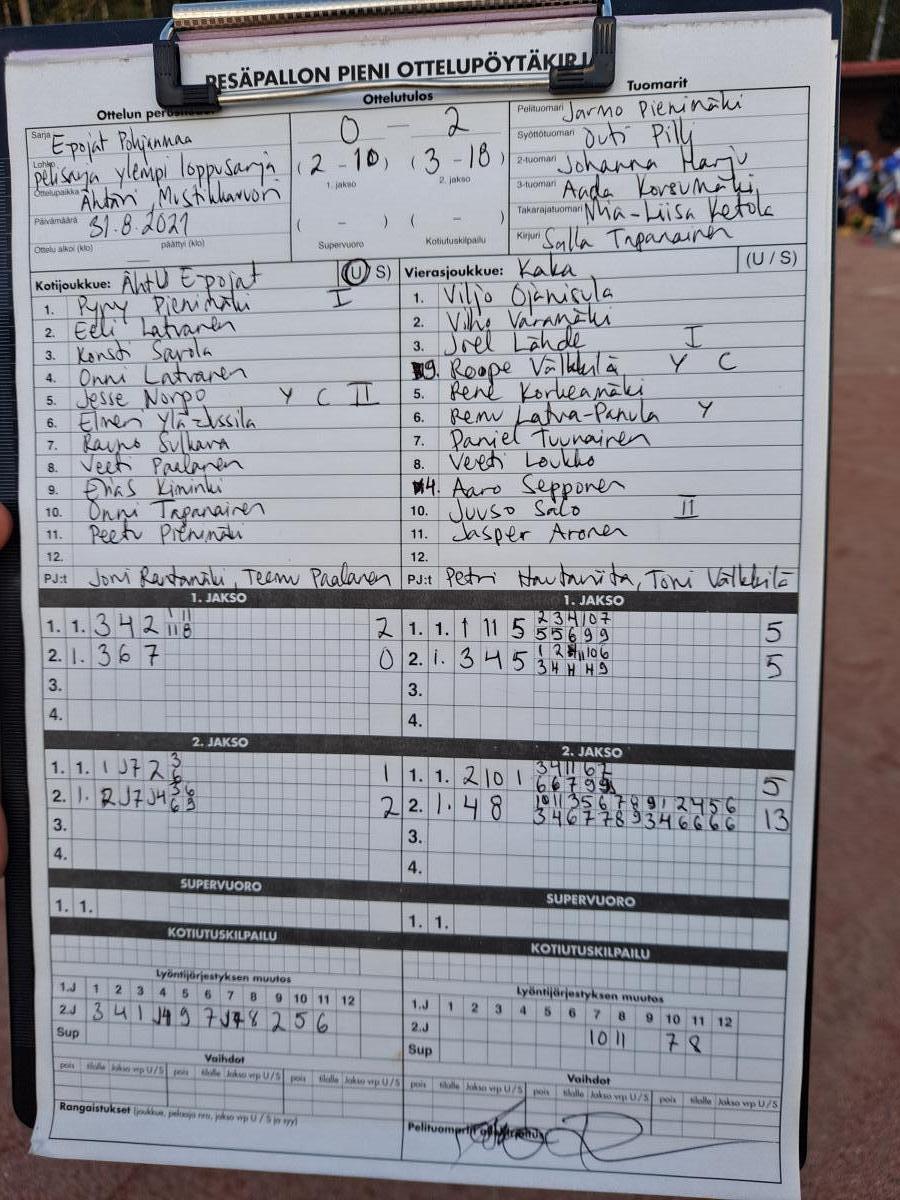 PESÄPALLON PIENI OTTELUPÖYTÄKIRJ
Ottelun
Ottelutulos
Tuomarit
Sarja Epojat Pohjanmaa
Lohko pelisarja ylempi loppusarja
Ottelupaikka Ähtäri, Mustikkavuori
Päivämäärä 31.8.2021
Ottelu alkoi (klo) päättyi (klo)
0 — 2
(2 - 10) (3 - 18)
1. jakso 2. jakso
( - ) ( - )
Supervuoro Kotiutuskilpailu
Pelituomari Jarmo Pienimäki
Syöttötuomari Outi Pilli
2-tuomari Johanna Harju
3-tuomari Aada Korsumäki
Takarajatuomari Mia-Liisa Ketola
Kirjuri Salla Tapanainen
Kotijoukkue: ÄhtU Epojat (U S)
1. Pyry Pienimäki I
2. Eeli Latvanen
3. Konsti Savola
4. Onni Latvanen
5. Jesse Norpo Y C II
6. Elmeri Ylä-Jussila
7. Rauno Sulkava
8. Veeti Paalanen
9. Elias Kiminki
10. Onni Tapanainen
11. Peetu Pienimäki
12.
PJ:t Joni Rantamäki, Teemu Paalanen
Vierasjoukkue: Kaka (U / S)
1. Viljo Ojanisula
2. Viho Varamäki
3. Joel Lähde I
9. Roope Välkkilä Y C
5. Rene Korkeamäki
6. Remu Latva-Panula Y
7. Daniel Tuunainen
8. Veeti Loukko
4. Aaro Sepponen
10. Juuso Salo II
11. Jasper Aronen
12.
PJ:t Petri Hautaniita, Toni Välkkilä
1. JAKSO
1. 1. 3 4 2 1 11 11 8 2
2. 1. 3 6 7 0
3.
4.
1. JAKSO
1. 1. 1 11 5 2 3 4 10 7 5 5 6 9 9 5
2. 1. 3 4 5 5
3.
4.
2. JAKSO
1. 1. 1 J7 2 3 6 1
2. 1. 2 J7 J4 3 6 6 9 2
3.
4.
2. JAKSO
1. 1. 2 10 1 3 4 11 6 7 6 6 7 9 9 5
2. 1. 4 8 10 11 3 5 6 7 8 9 1 2 4 5 6
3 4 6 7 7 8 9 3 4 6 6 6 6 13
3.
4.
SUPERVUORO
1. 1.
SUPERVUORO
1. 1.
KOTIUTUSKILPAILU
KOTIUTUSKILPAILU
Lyöntijärjestyksen muutos
1.J 1 2 3 4 5 6 7 8 9 10 11 12
2.J 3 4 1 J4 9 7 J7 8 2 5 6
Sup
Lyöntijärjestyksen muutos
1.J 1 2 3 4 5 6 7 8 9 10 11 12
2.J 10 11 7 8
Sup
Vaihdot
pois tilalle Jakso vrp U/S pois tilalle Jakso vrp U/S pois tilalle Jakso vrp U/S
Vaihdot
pois tilalle Jakso vrp U/S pois tilalle Jakso vrp U/S pois tilalle Jakso vrp U/S
Rangaistukset (joukkue, pelaaja nro, jakso vrp U / S ja syy)
Pelituomarin allekirjoitus